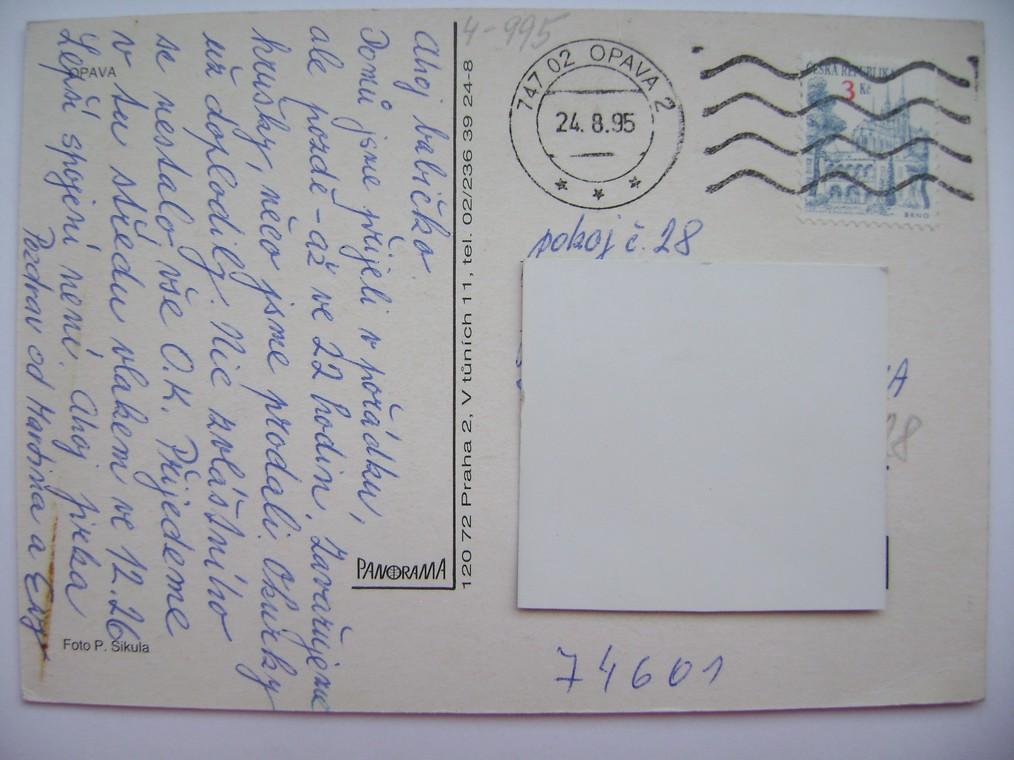 Ahoj babičko.
Domů jsme přijeli v pořádku,
ale pozdě - až ve 22 hodin. Zavařujeme
hrušky, něco jsme prodali. Okurky
už doplodily. Nic zvláštního
se nestalo, vše O.K. Přijedeme
v tu středu vlakem ve 12.26
Lepší spojení není. Ahoj Jirka
Pozdrav od Martina a Evy
OPAVA
Foto P. Sikula
PANORAMA
120 72 Praha 2, V tůních 11, tel. 02/236 39 24-8
4-995
747 02 OPAVA 2
24.8.95
ČESKÁ REPUBLIKA
3 Kč
BRNO
pokoj č. 28
A
28
74601